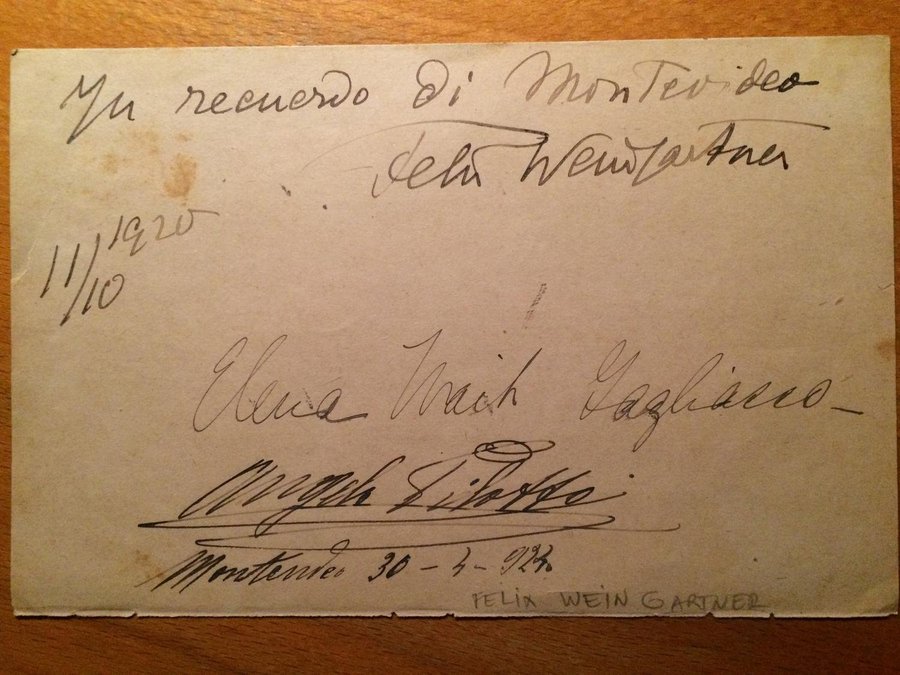 In recuerdo di Montevideo
Felix Weingartner
11/10 1920
Elena Gagliasso
Angelo Pilotto
Montevideo 30-4-924
FELIX WEINGARTNER